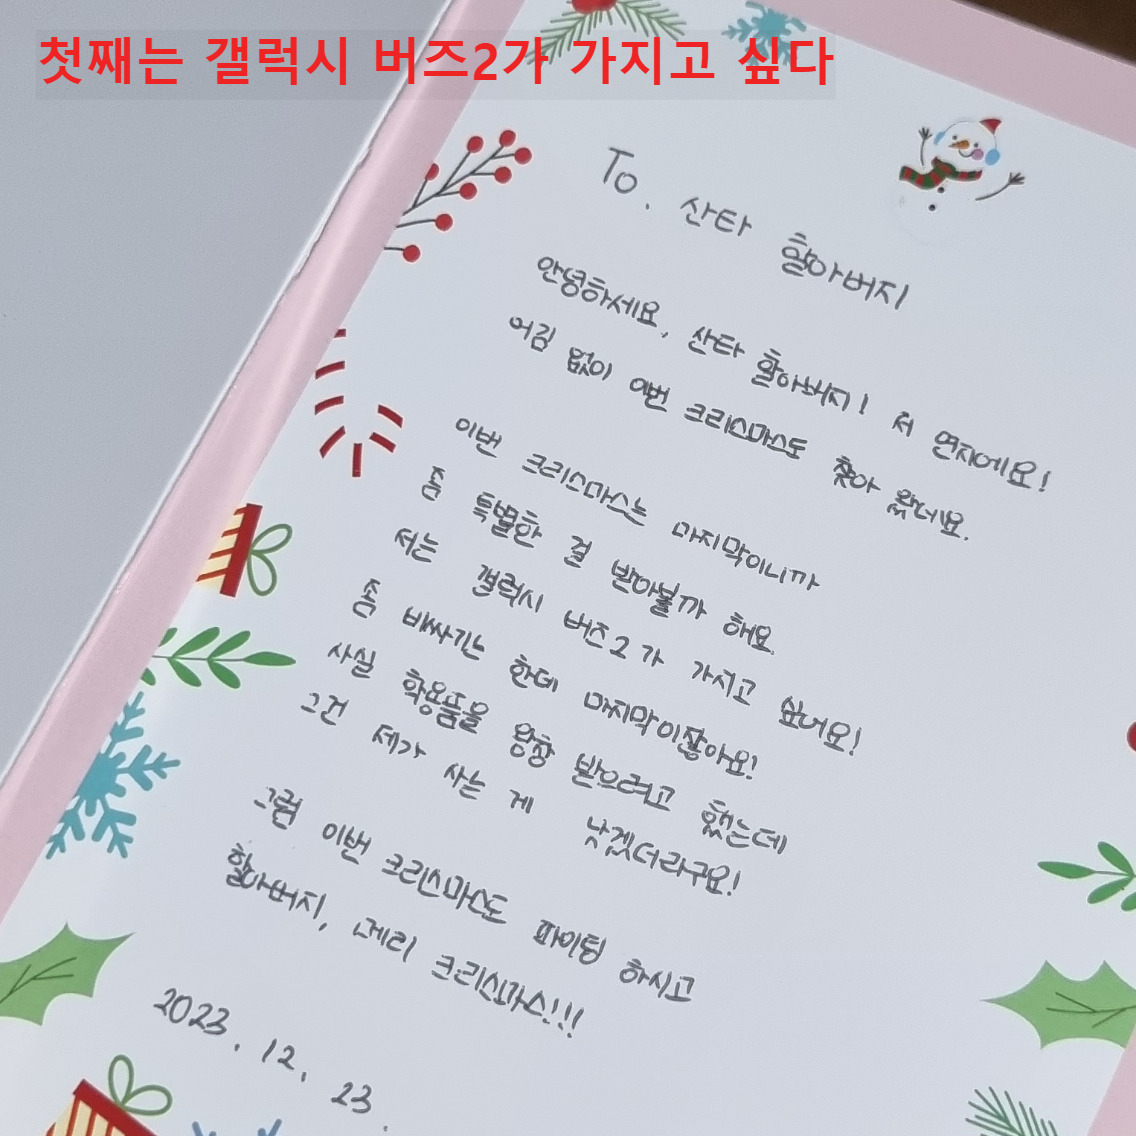 첫째는 갤럭시 버즈2가 가지고 싶다
To. 산타 할아버지
안녕하세요, 산타 할아버지! 저 연지에요!
어김 없이 이번 크리스마스도 찾아 왔네요.
이번 크리스마스는 마지막이니까
좀 특별한 걸 받아볼까 해요.
저는 갤럭시 버즈2가 가지고 싶어요!
좀 비싸기는 한데 마지막이잖아요!
사실 학용품을 왕창 받으려고 했는데
그건 제가 사는 게 낫겠더라구요!
그럼 이번 크리스마스도 파이팅 하시고
할아버지, 메리 크리스마스!!!
2023. 12. 23.